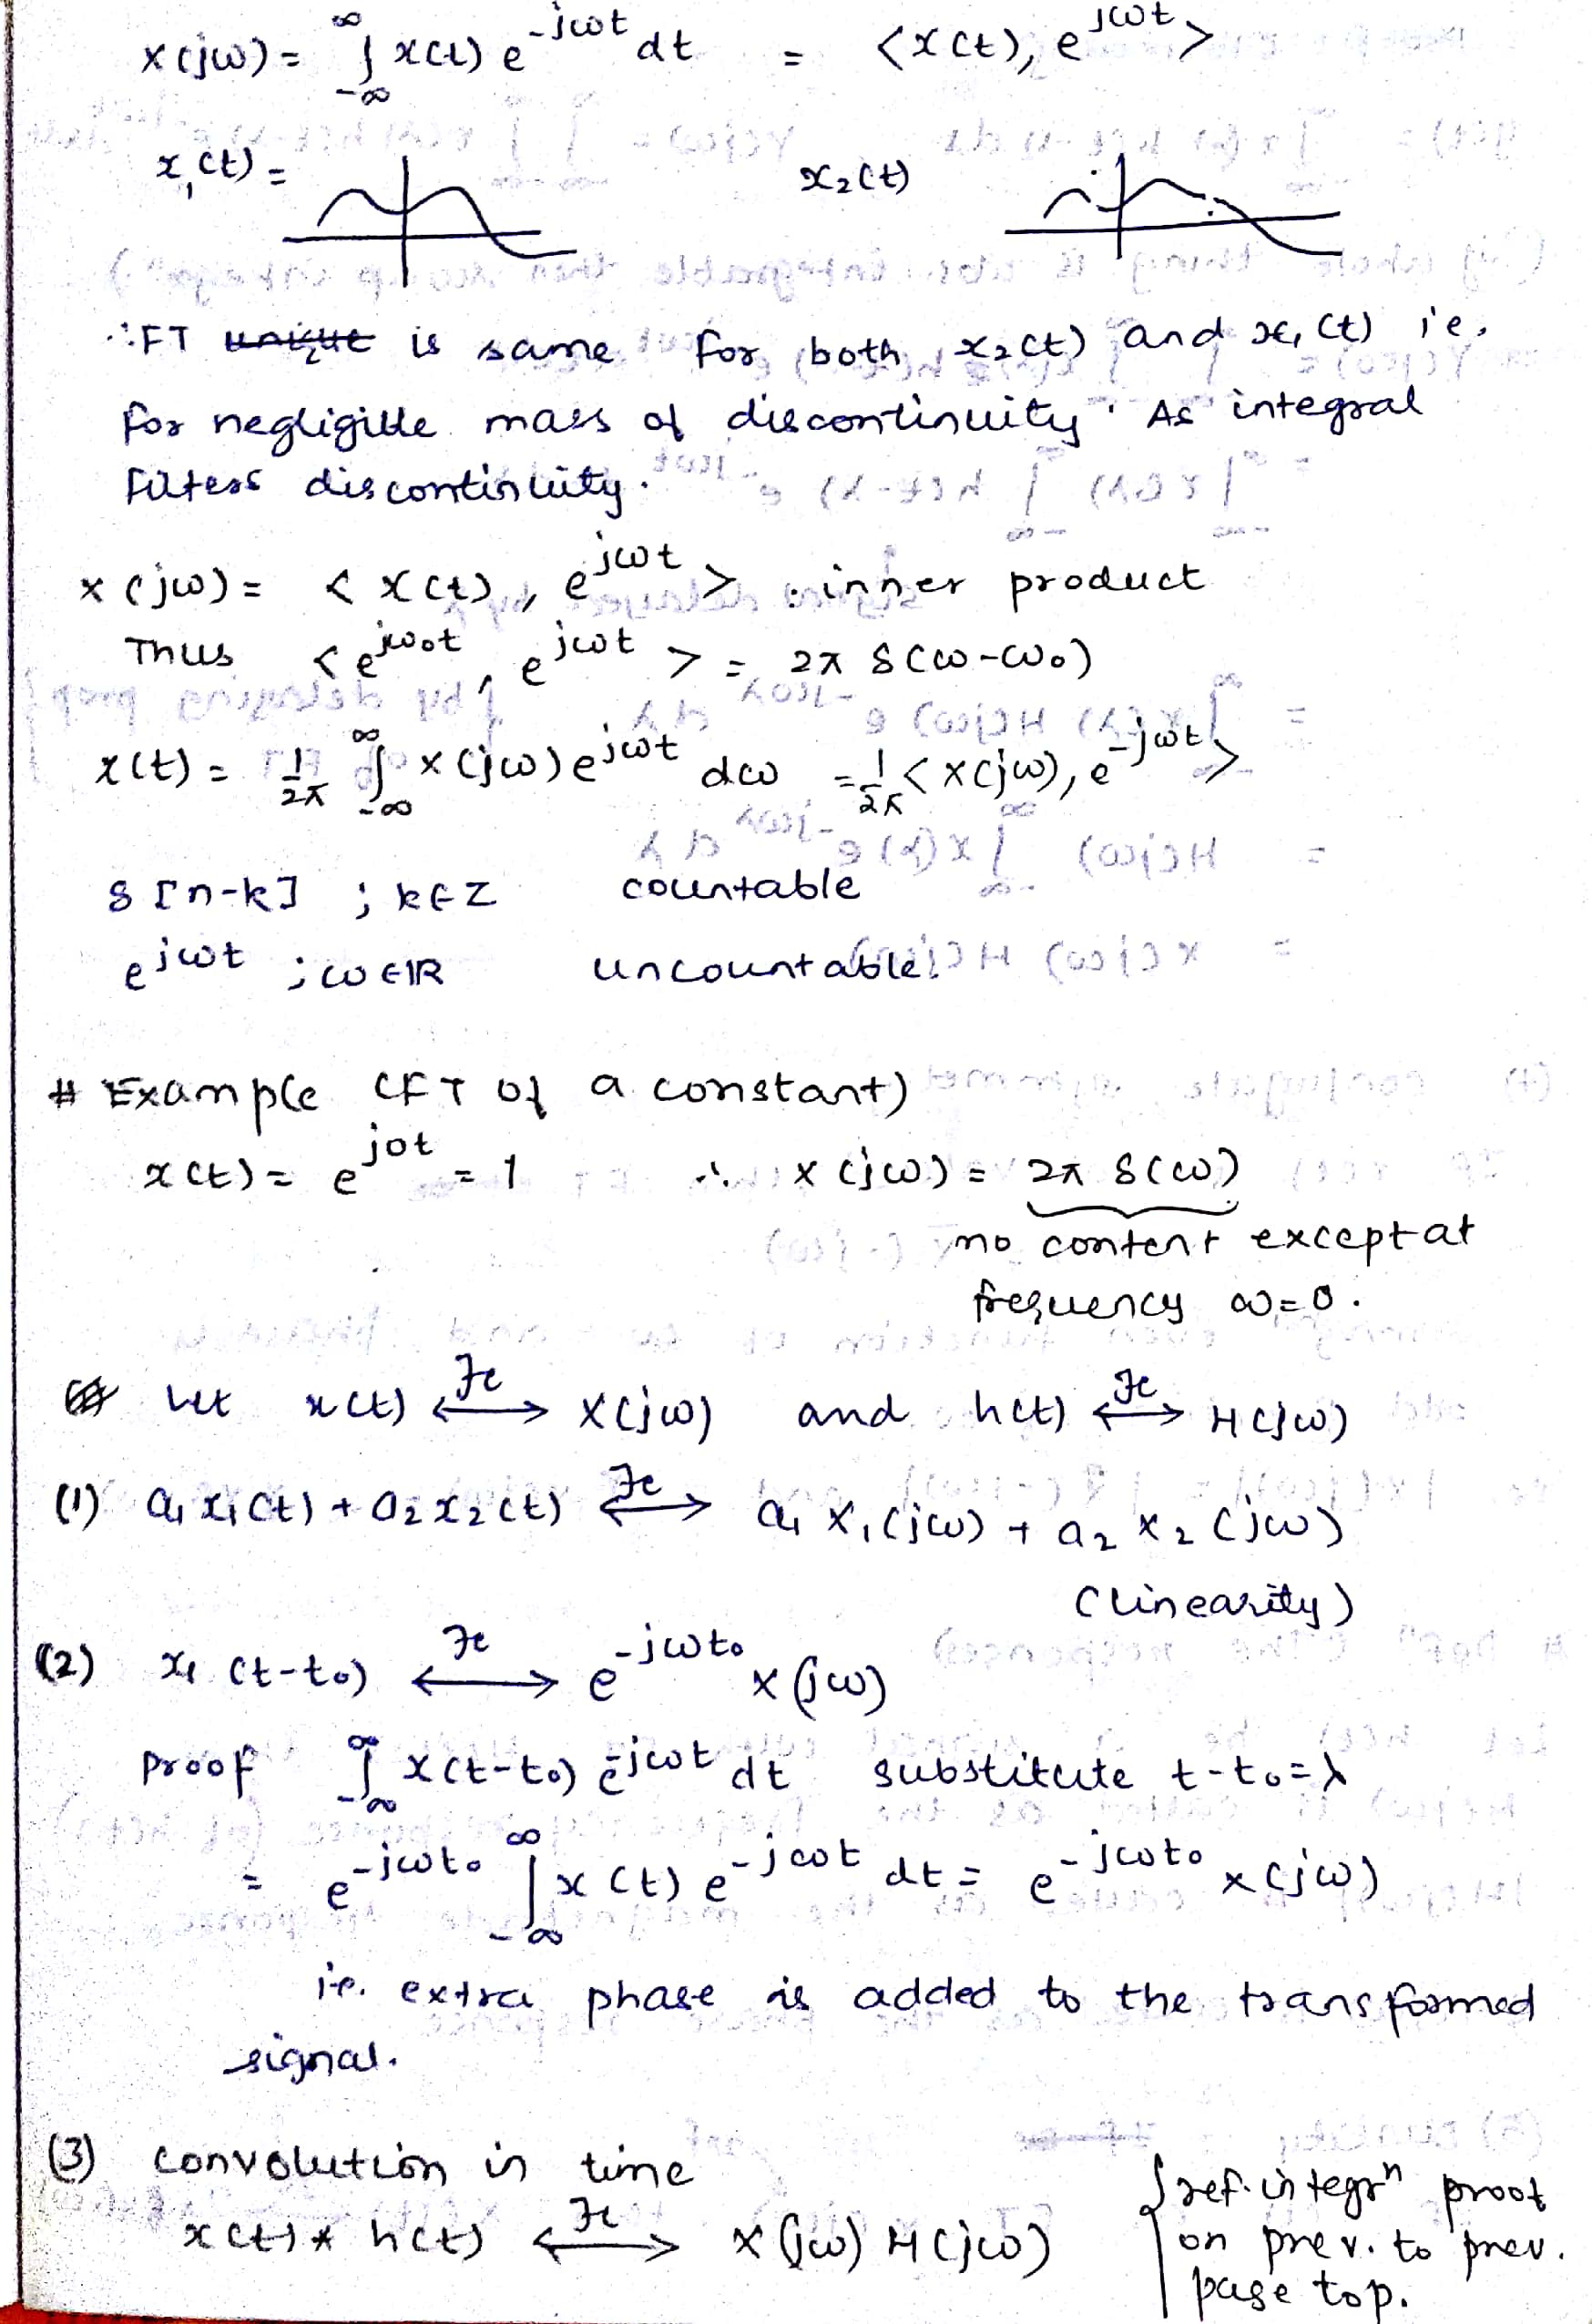 X(jω) = ∫_{-∞}^{∞} x(t) e^{-jωt} dt = <x(t), e^{jωt}>
x₁(t) = x₂(t)
∴ FT ~~unique~~ is same for both x₂(t) and x₁(t) i.e.
for negligible mass of discontinuity. As integral
filters discontinuity.
X(jω) = <x(t), e^{jωt}> : inner product
Thus <e^{jω₀t}, e^{jωt}> = 2π δ(ω-ω₀)
x(t) = 1/2π ∫_{-∞}^{∞} X(jω) e^{jωt} dω = 1/2π <X(jω), e^{-jωt}>
δ[n-k] ; k∈Z countable
e^{jωt} ; ω∈ℝ uncountable
# Example (FT of a constant)
x(t) = e^{j0t} = 1 ∴ X(jω) = 2π δ(ω)
no content except at
frequency ω=0.
Let x(t) ⟷^{Fc} X(jω) and h(t) ⟷^{Fc} H(jω)
(1) a₁x₁(t) + a₂x₂(t) ⟷^{Fc} a₁X₁(jω) + a₂X₂(jω)
(linearity)
(2) x₁(t-t₀) ⟷^{Fc} e^{-jωt₀} X(jω)
Proof ∫_{-∞}^{∞} x(t-t₀) e^{-jωt} dt substitute t-t₀=λ
= e^{-jωt₀} ∫_{-∞}^{∞} x(t) e^{-jωt} dt = e^{-jωt₀} X(jω)
i.e. extra phase is added to the transformed
signal.
(3) convolution in time
x(t) * h(t) ⟷^{Fc} X(jω) H(jω)
{ref. integrⁿ proof
on prev. to prev.
page top.